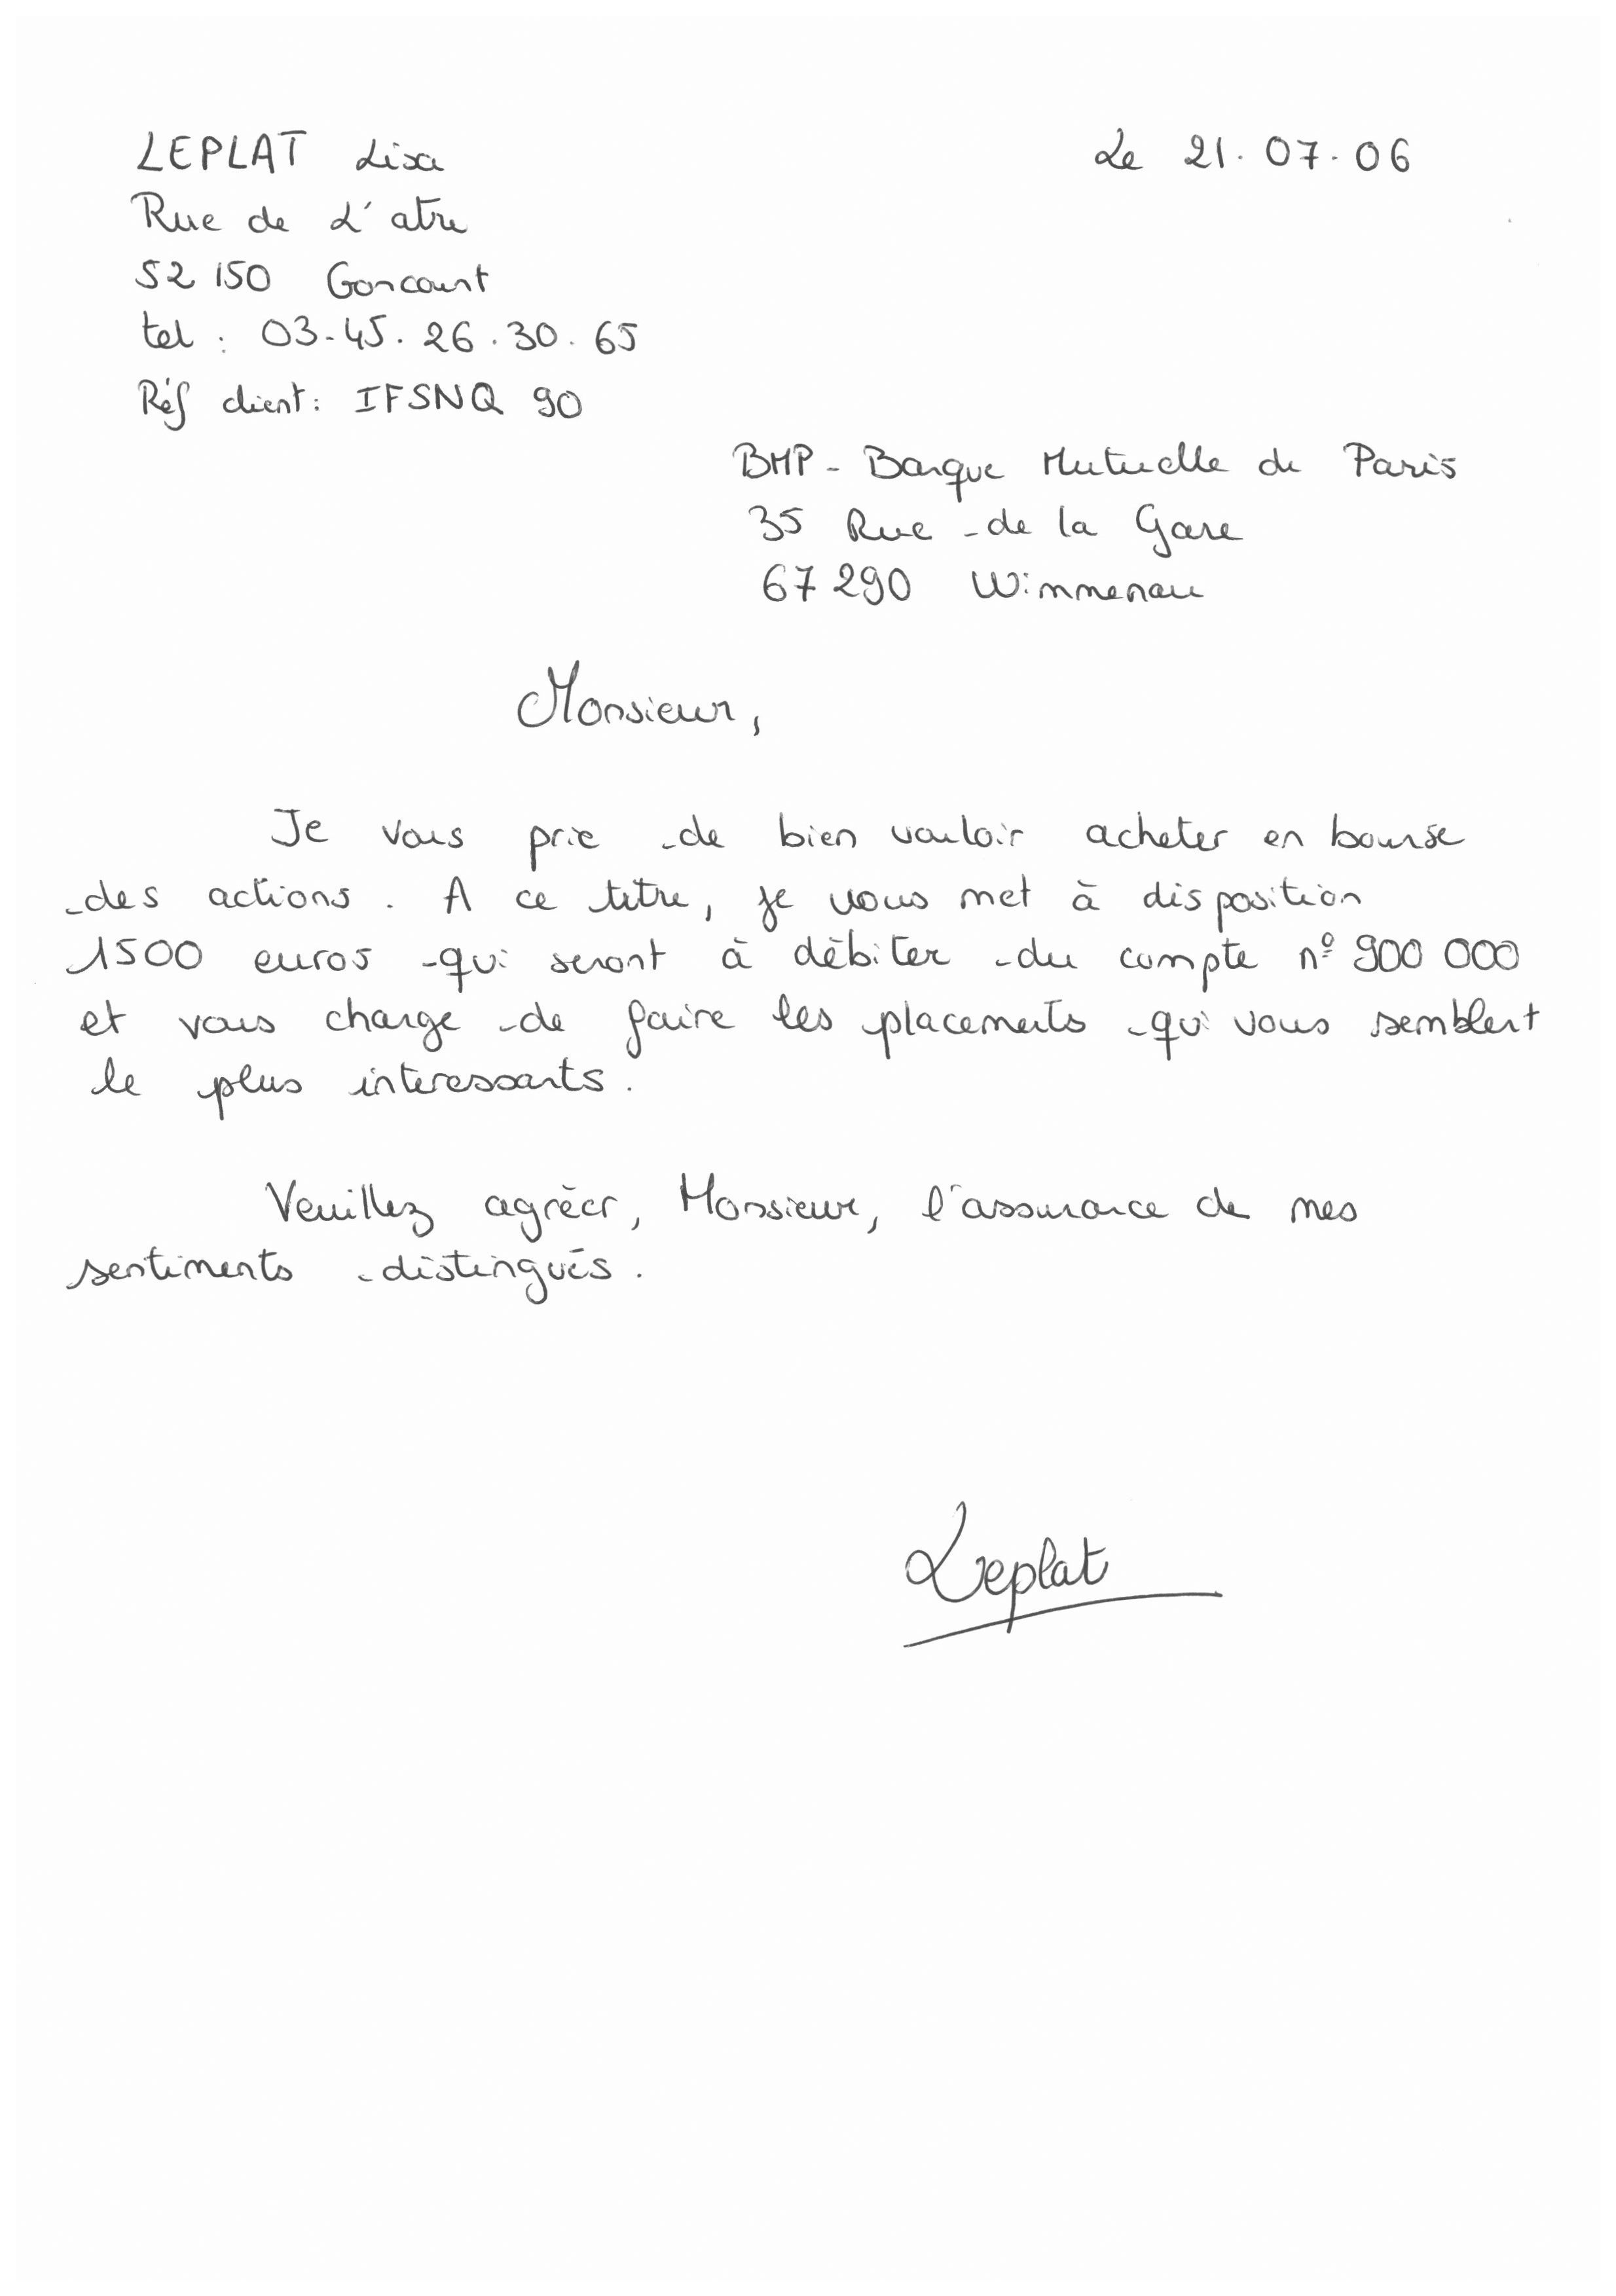 LEPLAT Lisa
Le 21.07.06
Rue de L'atre
52 150 Goncourt
tel : 03.45.26.30.65
Réf client : IFSNQ 90
BMP - Banque Mutuelle de Paris
35 Rue de la Gare
67 290 Wimmenau
Monsieur,
Je vous prie de bien vouloir acheter en bourse
des actions. A ce titre, je vous met à disposition
1500 euros qui seront à débiter du compte n° 900 000
et vous charge de faire les placements qui vous semblent
le plus interessants.
Veuillez agréer, Monsieur, l'assurance de mes
sentiments distingués.
Leplat